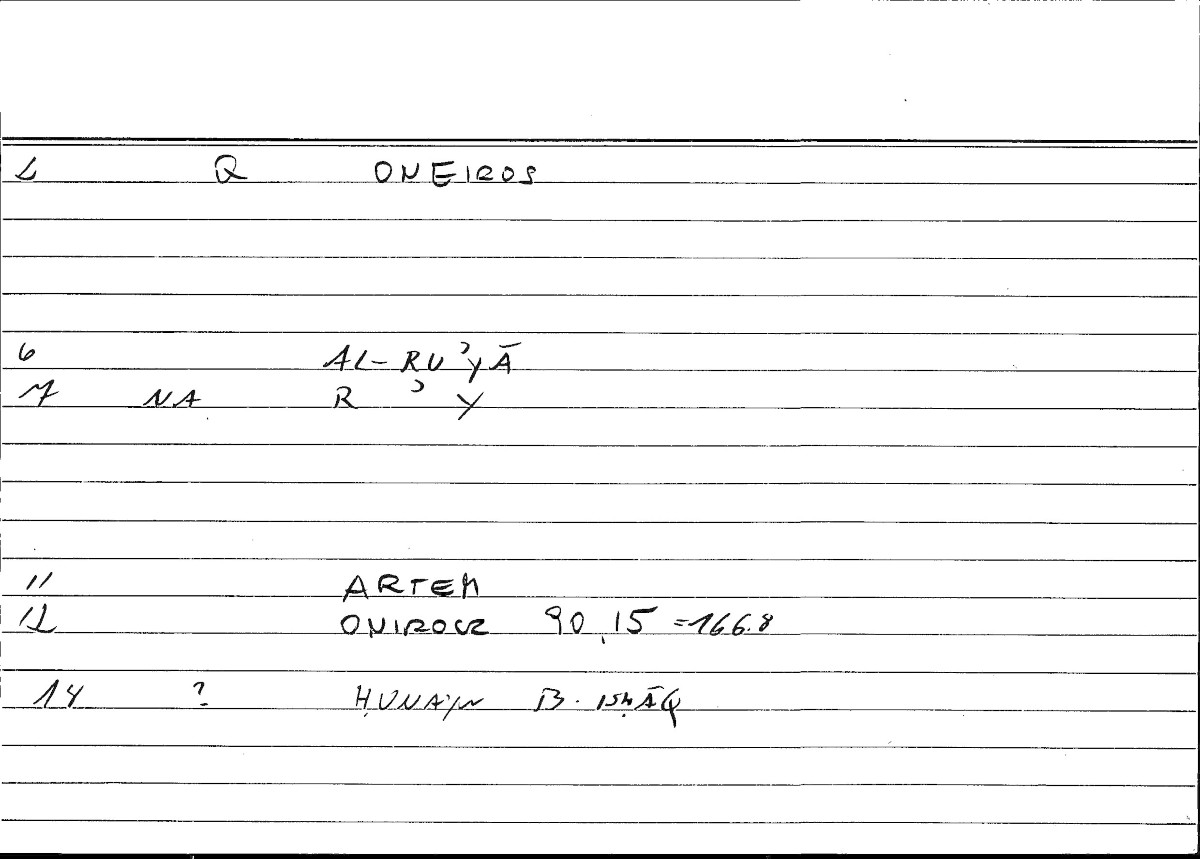 1 Q ONEIROS
6 AL-RUʾYĀ
7 NA R ʾ Y
11 ARTEM
12 ONIROCR 90,15 =166.8
14 ? ḤUNAYN B. ISḤĀQ